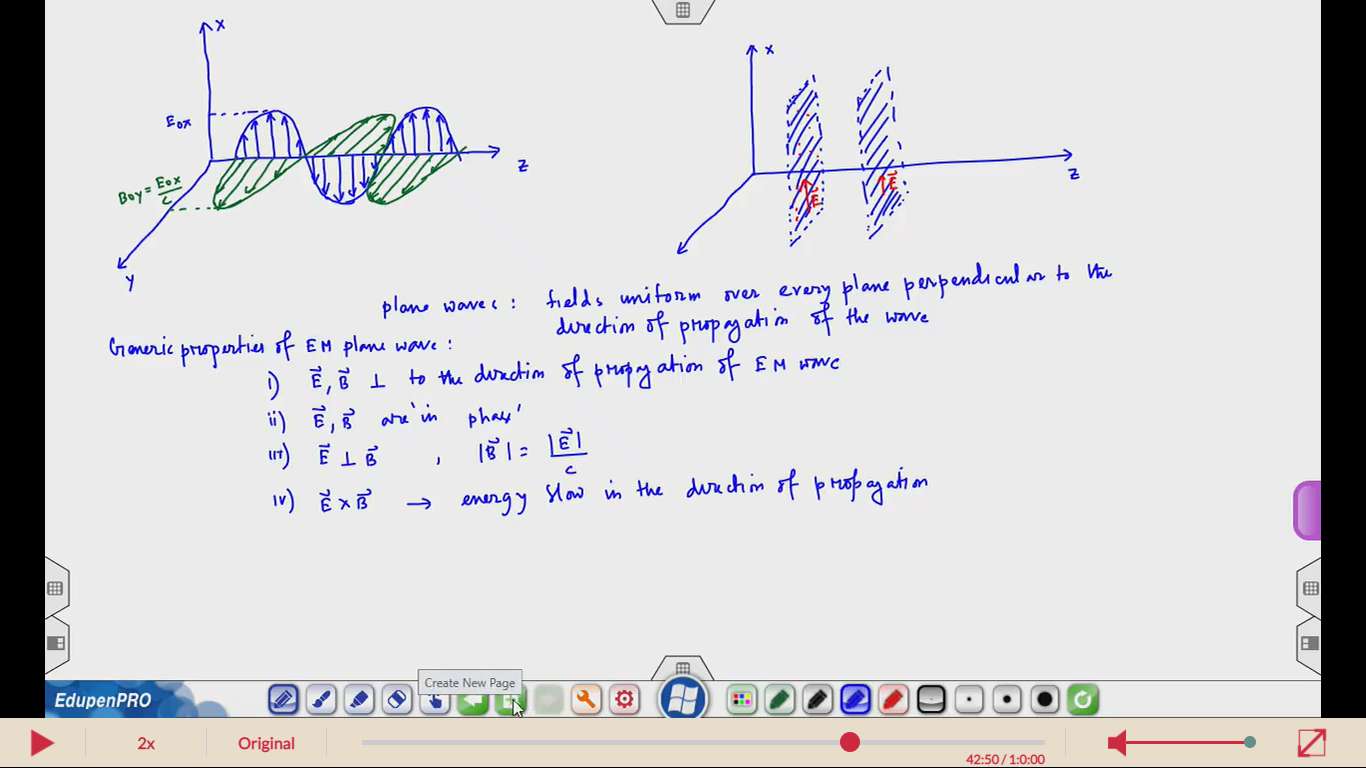 X
X
E₀ₓ
Z
Z
B₀Y = E₀ₓ/c
E⃗
E⃗
Y
plane waves : fields uniform over every plane perpendicular to the
direction of propagation of the wave
Generic properties of EM plane wave :
i) E⃗, B⃗ ⊥ to the direction of propagation of EM wave
ii) E⃗, B⃗ are 'in phase'
iii) E⃗ ⊥ B⃗ , |B⃗| = |E⃗|/c
iv) E⃗ × B⃗ → energy flow in the direction of propagation
Create New Page
EdupenPRO
2x
Original
42:50 / 1:0:00